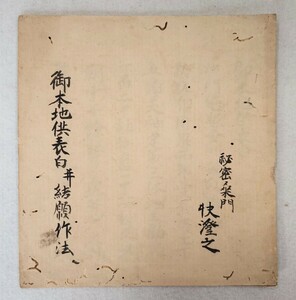 秘密桒門
快澄之
御本地供表白并結願作法